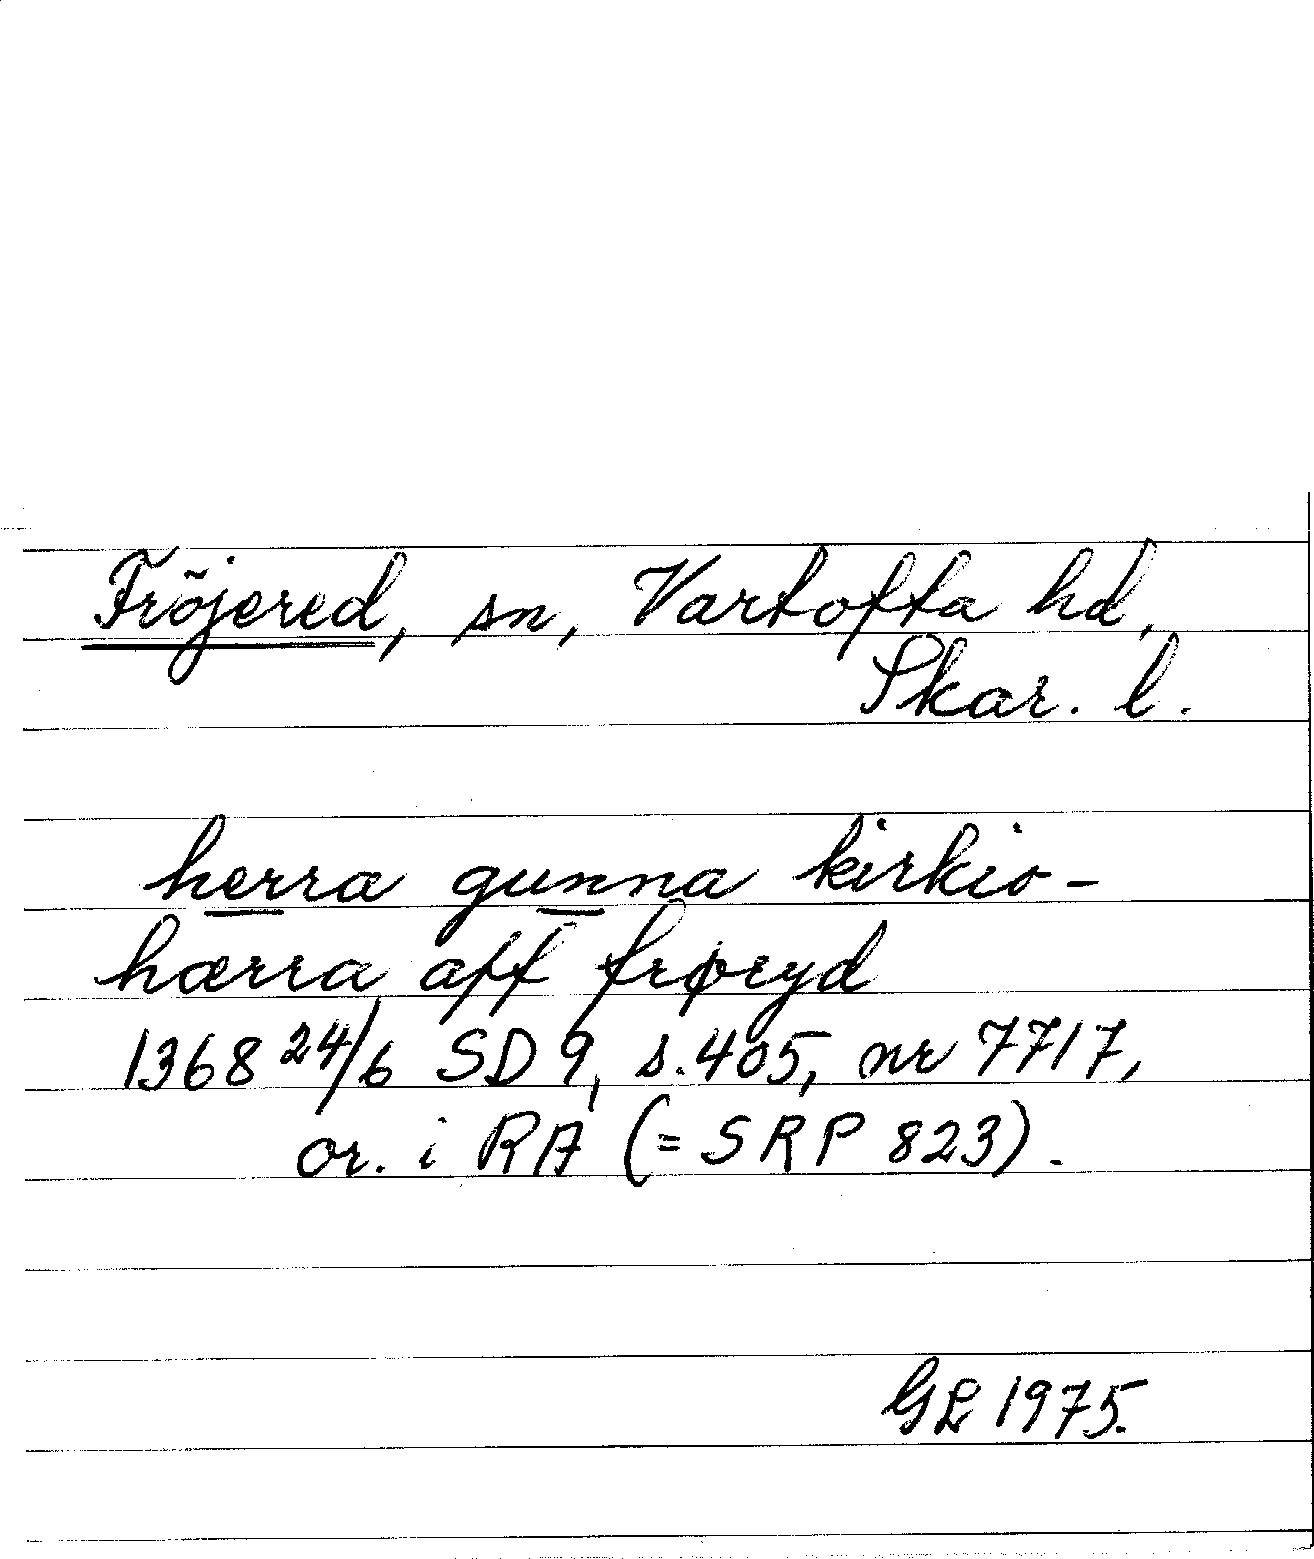 Fröjered, sn, Vartofta hd,
Skar. l.
herra gunna kirkio-
hærra aff frøryd
1368 24/6 SD 9, s. 405, nr 7717,
or. i RA (= SRP 823).
GL 1975.